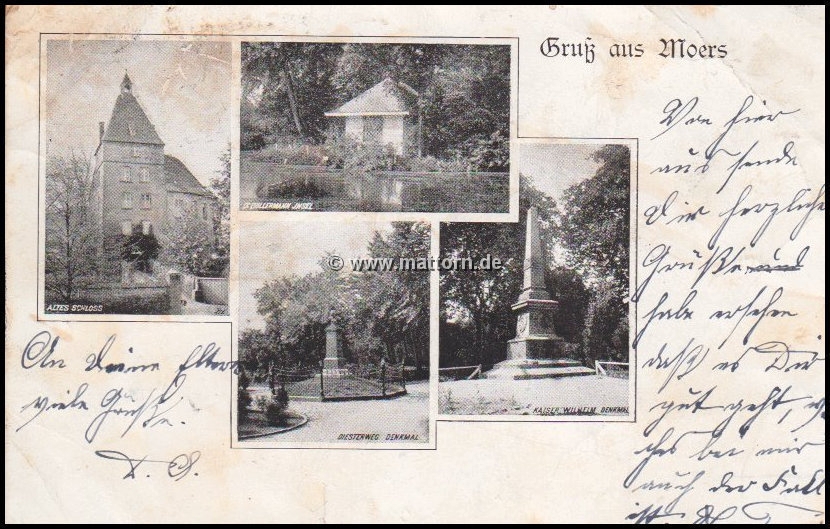 Gruß aus Moers
ALTES SCHLOSS
STOLLERMANN INSEL
© www.mattorn.de
DIESTERWEG DENKMAL
KAISER WILHELM DENKMAL
Von hier
aus sende
Dir herzliche
Grüße und
habe ersehen
daß es Dir
gut geht, w
ches bei mir
auch der Fall
ist.
An deine Eltern
viele Grüße.
D. O.